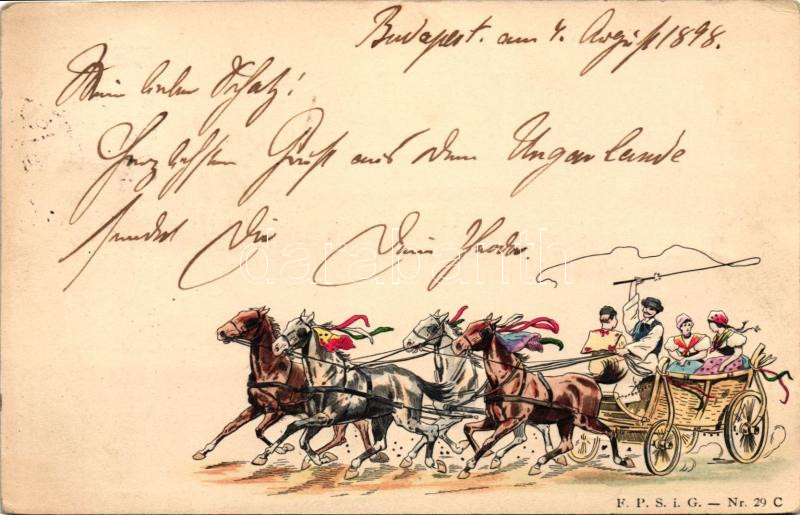 Budapest. am 4. August 1898.
Mein lieber Schatz!
Herzlichsten Gruß aus dem Ungarlande
sendet Dir Dein Theodor.
darabanth
F. P. S. i. G. — Nr. 29 C